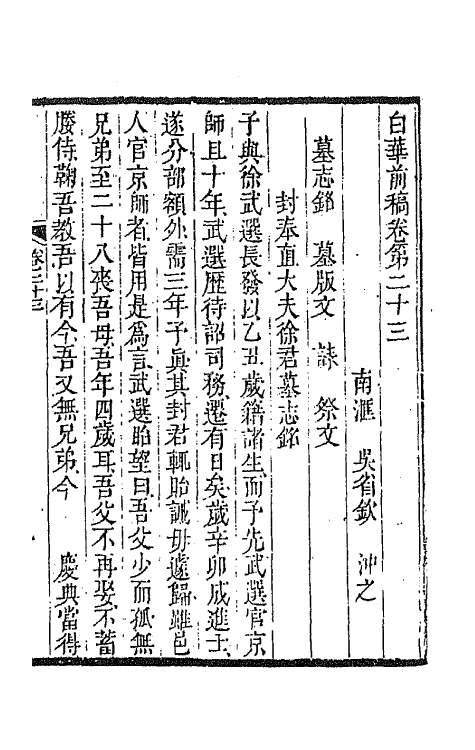 白華前稿卷第二十三
南滙 吳省欽 沖之
墓志銘 墓版文 誄 祭文
封奉直大夫徐君墓志銘
予與徐武選長發以乙丑歲籍諸生而予先武選官京
師且十年武選歷待詔司務遷有日矣歲辛卯成進士
遂分部額外需三年予冀其封君輒貽誡毋遽歸雖邑
人官京師者皆用是爲言武選眙望曰吾父少而孤無
兄弟至二十八喪吾母吾年四歲耳吾父不再娶不蓄
媵侍鞠吾教吾以有今吾又無兄弟今 慶典當得
卷二十三